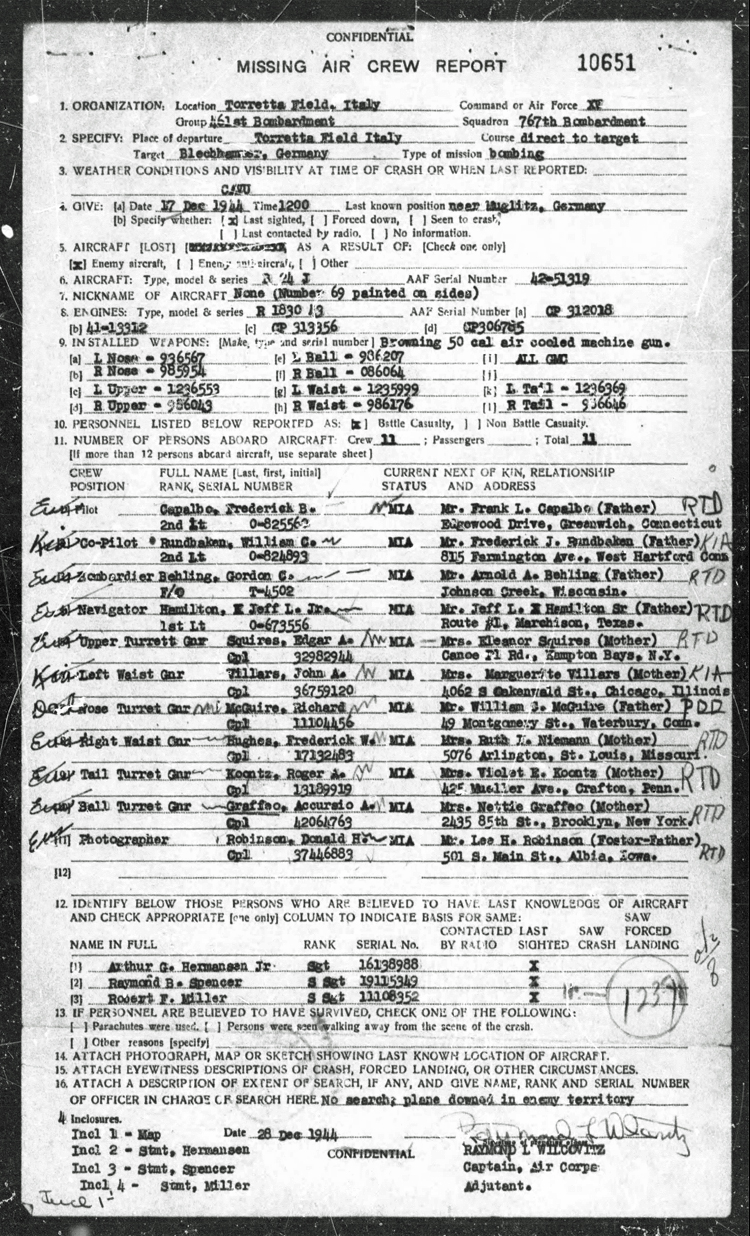 CONFIDENTIAL
MISSING AIR CREW REPORT 10651
1. ORGANIZATION: Location Torretta Field, Italy Command or Air Force XF
Group 461st Bombardment Squadron 767th Bombardment
2. SPECIFY: Place of departure Torretta Field Italy Course direct to target
Target Blechhammer, Germany Type of mission bombing
3. WEATHER CONDITIONS AND VISIBILITY AT TIME OF CRASH OR WHEN LAST REPORTED:
CAVU
4. GIVE: [a] Date 17 Dec 1944 Time 1200 Last known position near Muglitz, Germany
[b] Specify whether: [x] Last sighted, [ ] Forced down, [ ] Seen to crash,
[ ] Last contacted by radio. [ ] No information.
5. AIRCRAFT [LOST] AS A RESULT OF: [Check one only]
[x] Enemy aircraft, [ ] Enemy anti-aircraft, [ ] Other
6. AIRCRAFT: Type, model & series B 24 J AAF Serial Number 42-51319
7. NICKNAME OF AIRCRAFT None (Number 69 painted on sides)
8. ENGINES: Type, model & series R 1830 AAF Serial Number [a] CP 312018
[b] 41-13312 [c] CP 313356 [d] CP306785
9. INSTALLED WEAPONS: [Make, type and serial number] Browning 50 cal air cooled machine gun.
[a] L Nose - 936567 [e] L Ball - 986207 [i] ALL GMC
[b] R Nose - 985954 [f] R Ball - 086064 [j]
[c] L Upper - 1236553 [g] L Waist - 1235999 [k] L Tail - 1236369
[d] R Upper - 956043 [h] R Waist - 986176 [l] R Tail - 936646
10. PERSONNEL LISTED BELOW REPORTED AS: [x] Battle Casualty, [ ] Non Battle Casualty.
11. NUMBER OF PERSONS ABOARD AIRCRAFT: Crew 11 ; Passengers ; Total 11
[If more than 12 persons aboard aircraft, use separate sheet]
CREW FULL NAME [Last, first, initial] CURRENT NEXT OF KIN, RELATIONSHIP
POSITION RANK, SERIAL NUMBER STATUS AND ADDRESS
Pilot Capalbo, Frederick B. MIA Mr. Frank L. Capalbo (Father) RTD
2nd Lt O-825562 Edgewood Drive, Greenwich, Connecticut
Co-Pilot Rundbaken, William C. MIA Mr. Frederick J. Rundbaken (Father) KIA
2nd Lt O-824893 815 Farmington Ave., West Hartford Conn
Bombardier Behling, Gordon C. MIA Mr. Arnold A. Behling (Father) RTD
F/O T-4502 Johnson Creek, Wisconsin.
Navigator Hamilton, X Jeff L. Jr. MIA Mr. Jeff L. X Hamilton Sr (Father) RTD
1st Lt O-673556 Route #1, Marchison, Texas.
Upper Turrett Gnr Squires, Edgar A. MIA Mrs. Eleanor Squires (Mother) RTD
Cpl 32982944 Canoe Pl Rd., Hampton Bays, N.Y.
Left Waist Gnr Villars, John A. MIA Mrs. Marguerite Villars (Mother) KIA
Cpl 36759120 4062 S Oakenwald St., Chicago, Illinois
Nose Turret Gnr McGuire, Richard MIA Mr. William J. McGuire (Father)
Cpl 11104456 49 Montgomery St., Waterbury, Conn.
Right Waist Gnr Hughes, Frederick W. MIA Mrs. Ruth I. Niemann (Mother) RTD
Cpl 17132483 5076 Arlington, St. Louis, Missouri.
Tail Turret Gnr Koontz, Roger A. MIA Mrs. Violet E. Koontz (Mother) RTD
Cpl 13189919 425 Mueller Ave., Crafton, Penn.
Ball Turret Gnr Graffeo, Accursio A. MIA Mrs. Nettie Graffeo (Mother) RTD
Cpl 42064763 2435 85th St., Brooklyn, New York.
Photographer Robinson, Donald H. MIA Mr. Lee H. Robinson (Foster-Father)
Cpl 37446883 501 S. Main St., Albia, Iowa. RTD
[12]
12. IDENTIFY BELOW THOSE PERSONS WHO ARE BELIEVED TO HAVE LAST KNOWLEDGE OF AIRCRAFT
AND CHECK APPROPRIATE [one only] COLUMN TO INDICATE BASIS FOR SAME: SAW
CONTACTED LAST SAW FORCED
NAME IN FULL RANK SERIAL No. BY RADIO SIGHTED CRASH LANDING
[1] Arthur G. Hermansen Jr Sgt 16138988 X
[2] Raymond B. Spencer S Sgt 19115349 X
[3] Robert F. Miller S Sgt 11108352 X
13. IF PERSONNEL ARE BELIEVED TO HAVE SURVIVED, CHECK ONE OF THE FOLLOWING:
[ ] Parachutes were used. [ ] Persons were seen walking away from the scene of the crash.
[ ] Other reasons [specify]
14. ATTACH PHOTOGRAPH, MAP OR SKETCH SHOWING LAST KNOWN LOCATION OF AIRCRAFT.
15. ATTACH EYEWITNESS DESCRIPTIONS OF CRASH, FORCED LANDING, OR OTHER CIRCUMSTANCES.
16. ATTACH A DESCRIPTION OF EXTENT OF SEARCH, IF ANY, AND GIVE NAME, RANK AND SERIAL NUMBER
OF OFFICER IN CHARGE OF SEARCH HERE. No search; plane downed in enemy territory
4 Inclosures.
Incl 1 - Map Date 28 Dec 1944
Incl 2 - Stmt, Hermansen CONFIDENTIAL RAYMOND L WILCOVITZ
Incl 3 - Stmt, Spencer Captain, Air Corps
Incl 4 - Stmt, Miller Adjutant.